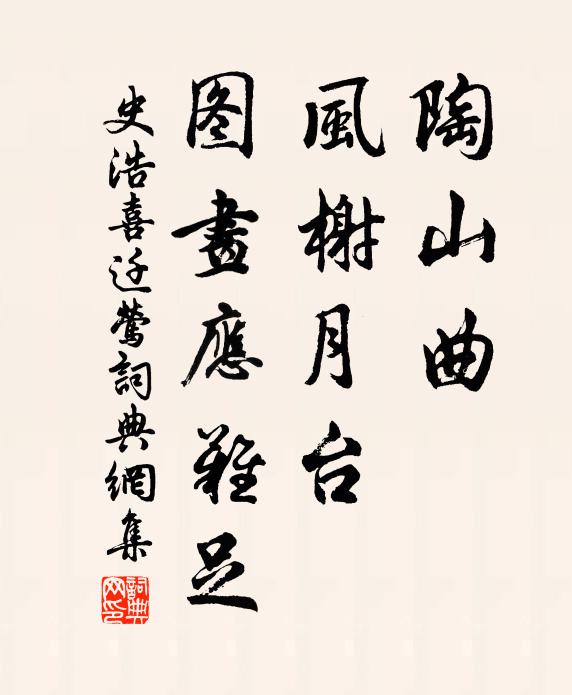 陶山曲
風榭月台
图畫應難足
史浩喜迁鶯詞典網集
詞典網印